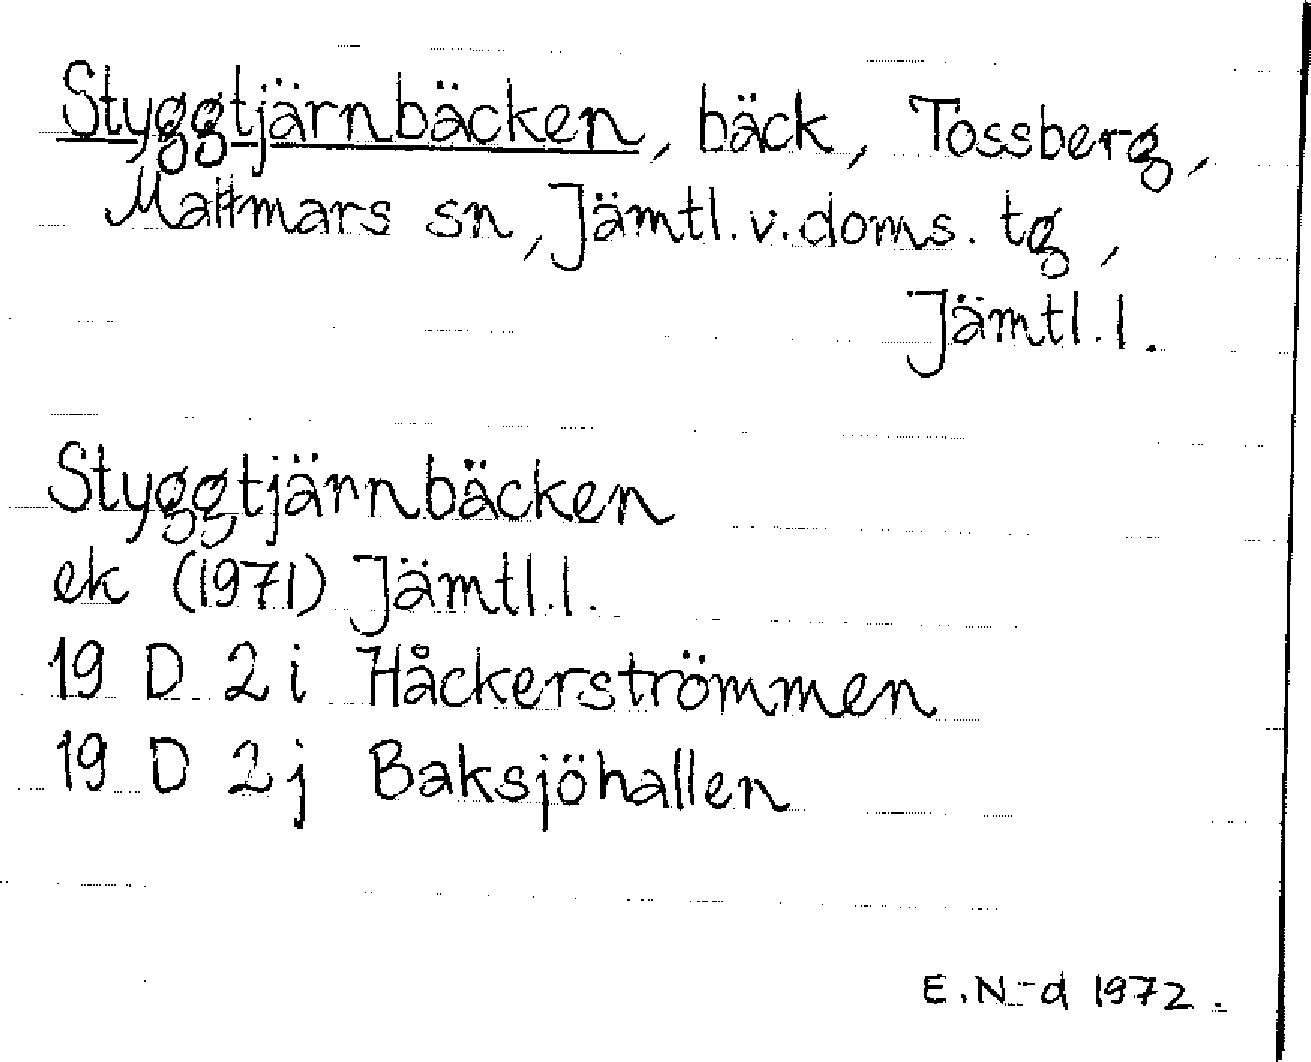 Styggtjärnbäcken, bäck, Tossberg,
Mattmars sn, Jämtl. v. doms. tg,
Jämtl. l.
Styggtjärnbäcken
ek (1971) Jämtl. l.
19 D 2 i Håckerströmmen
19 D 2 j Baksjöhallen
E. N-d 1972.